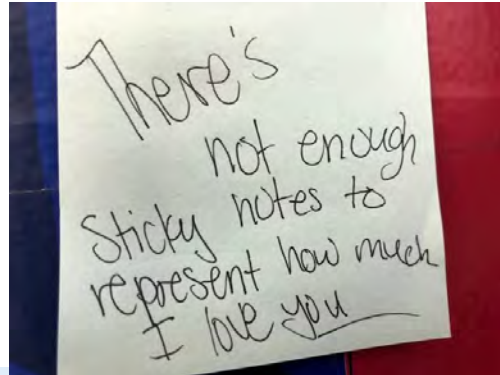 There's
not enough
Sticky notes to
represent how much
I love you